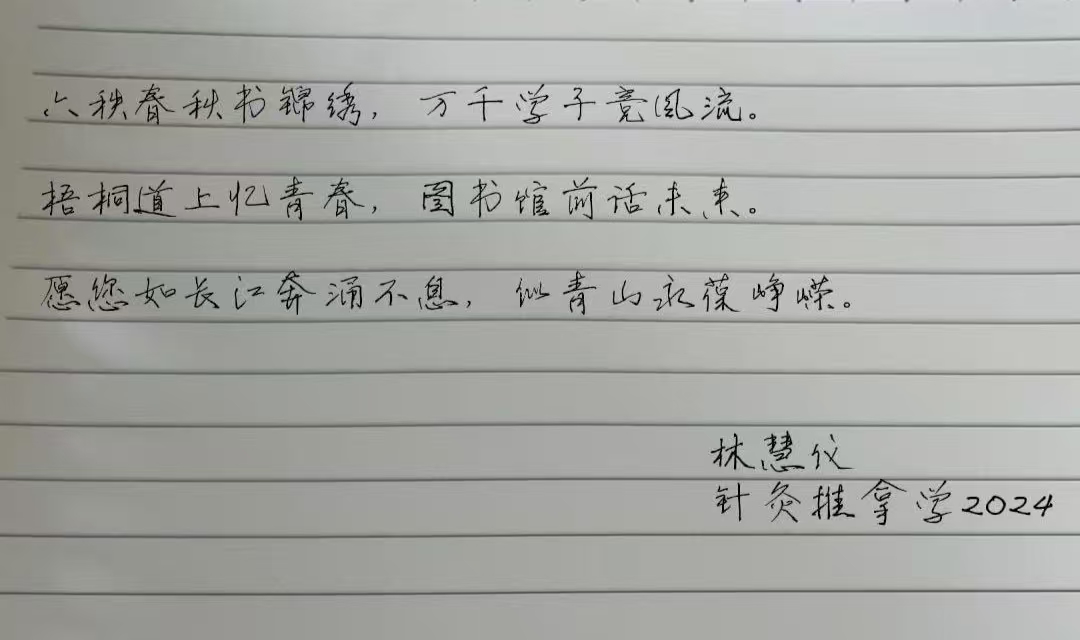 六秩春秋书锦绣，万千学子竞风流。
梧桐道上忆青春，图书馆前话未来。
愿您如长江奔涌不息，似青山永葆峥嵘。
林慧仪
针灸推拿学2024